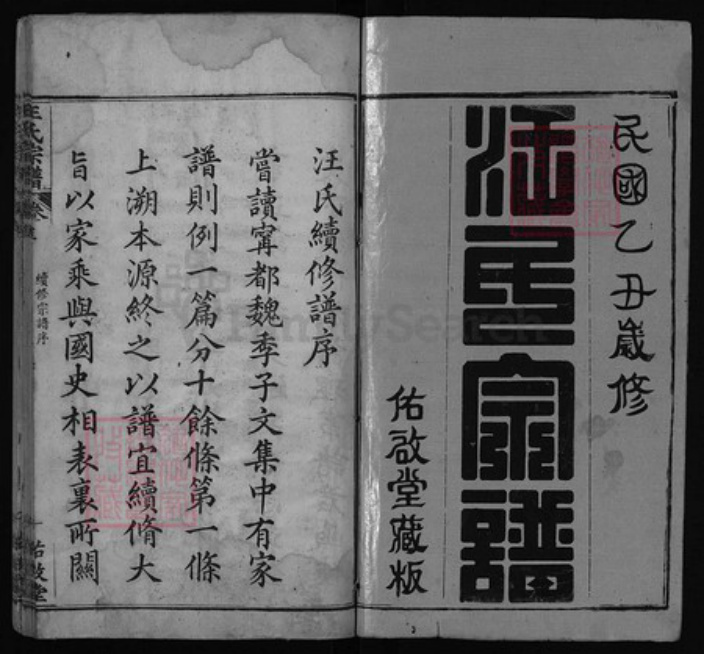 民國乙丑歲修
汪氏宗譜
佑啟堂藏板
汪氏續修譜序
嘗讀甯都魏季子文集中有家
譜則例一篇分十餘條第一條
上溯本源終之以譜宜續脩大
旨以家乘與國史相表裏所關
汪氏宗譜
續修宗譜序
佑啟堂
FamilySearch